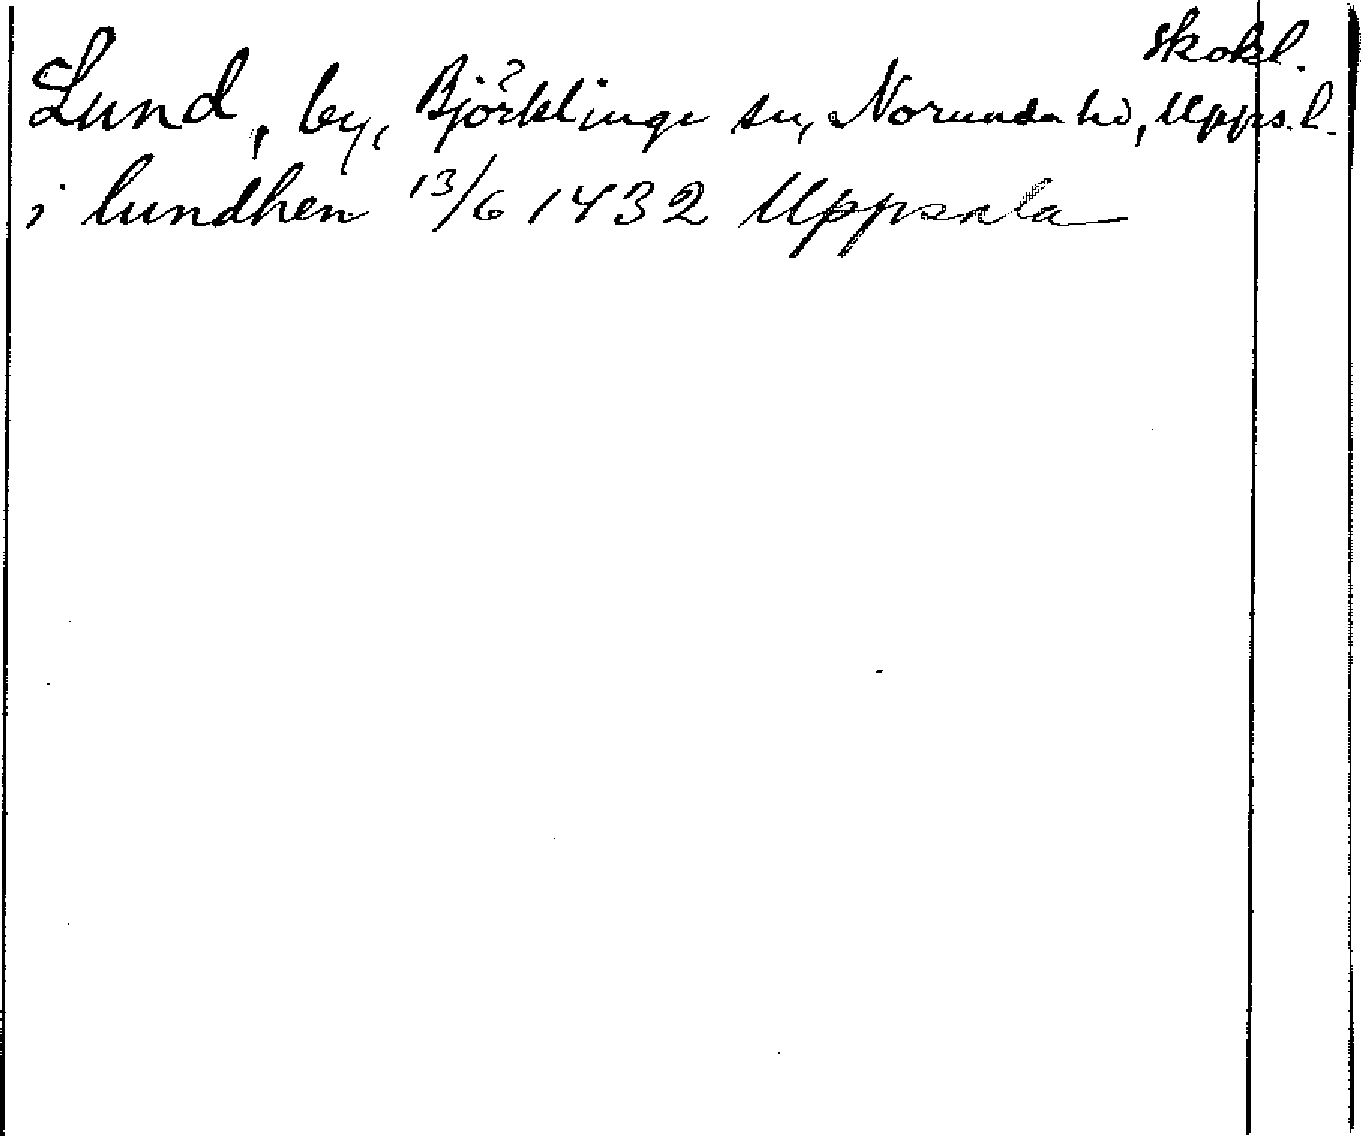 Skokl.
Lund, by, Björklinge sn, Norunda hd, Upps. l.
i lundhen 13/6 1432 Uppsala